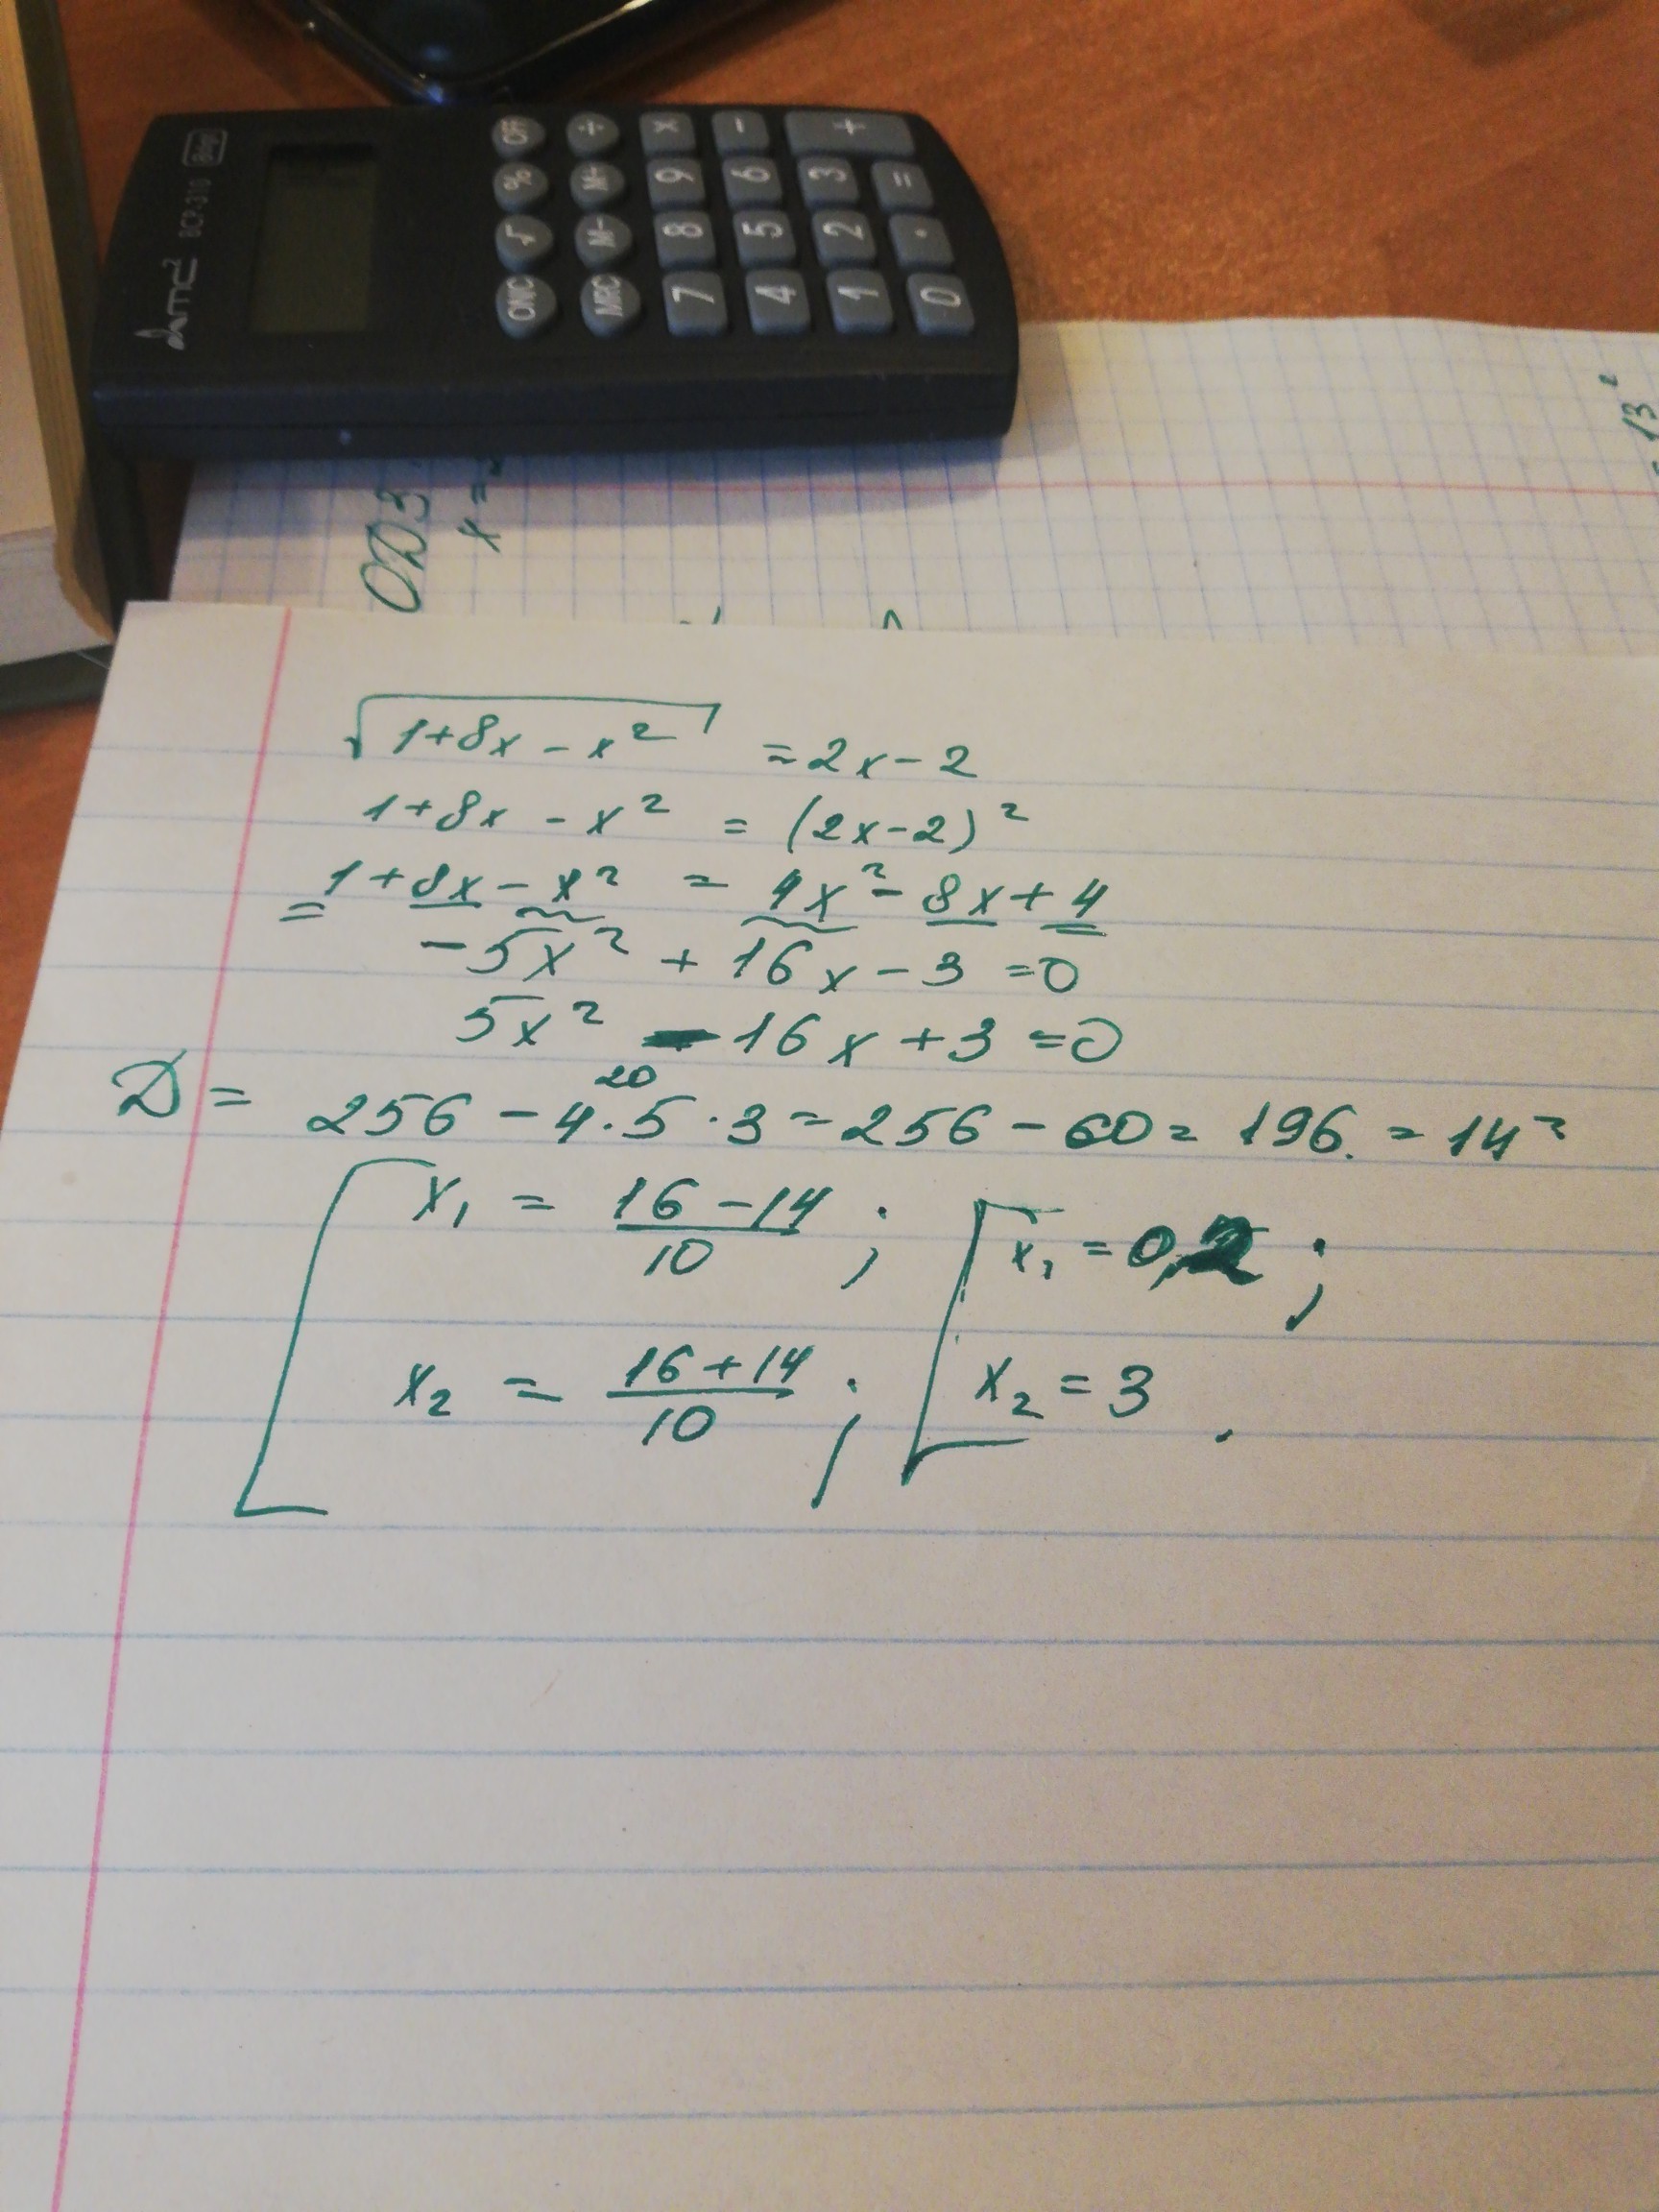 dmc²
BCP-310
OFF ÷ × - +
% M+ 9 6 3 =
√ M- 8 5 2 .
ON/C MRC 7 4 1 0
ОДЗ
x =
13²
√1+8x-x² = 2x-2
1+8x-x² = (2x-2)²
1+8x-x² = 4x²-8x+4
=
-5x²+16x-3=0
5x²-16x+3=0
20
D = 256-4·5·3=256-60=196.=14²
x₁ = 16-14/10 ; x₁=0,2 ;
x₂ = 16+14/10 ; x₂=3 .